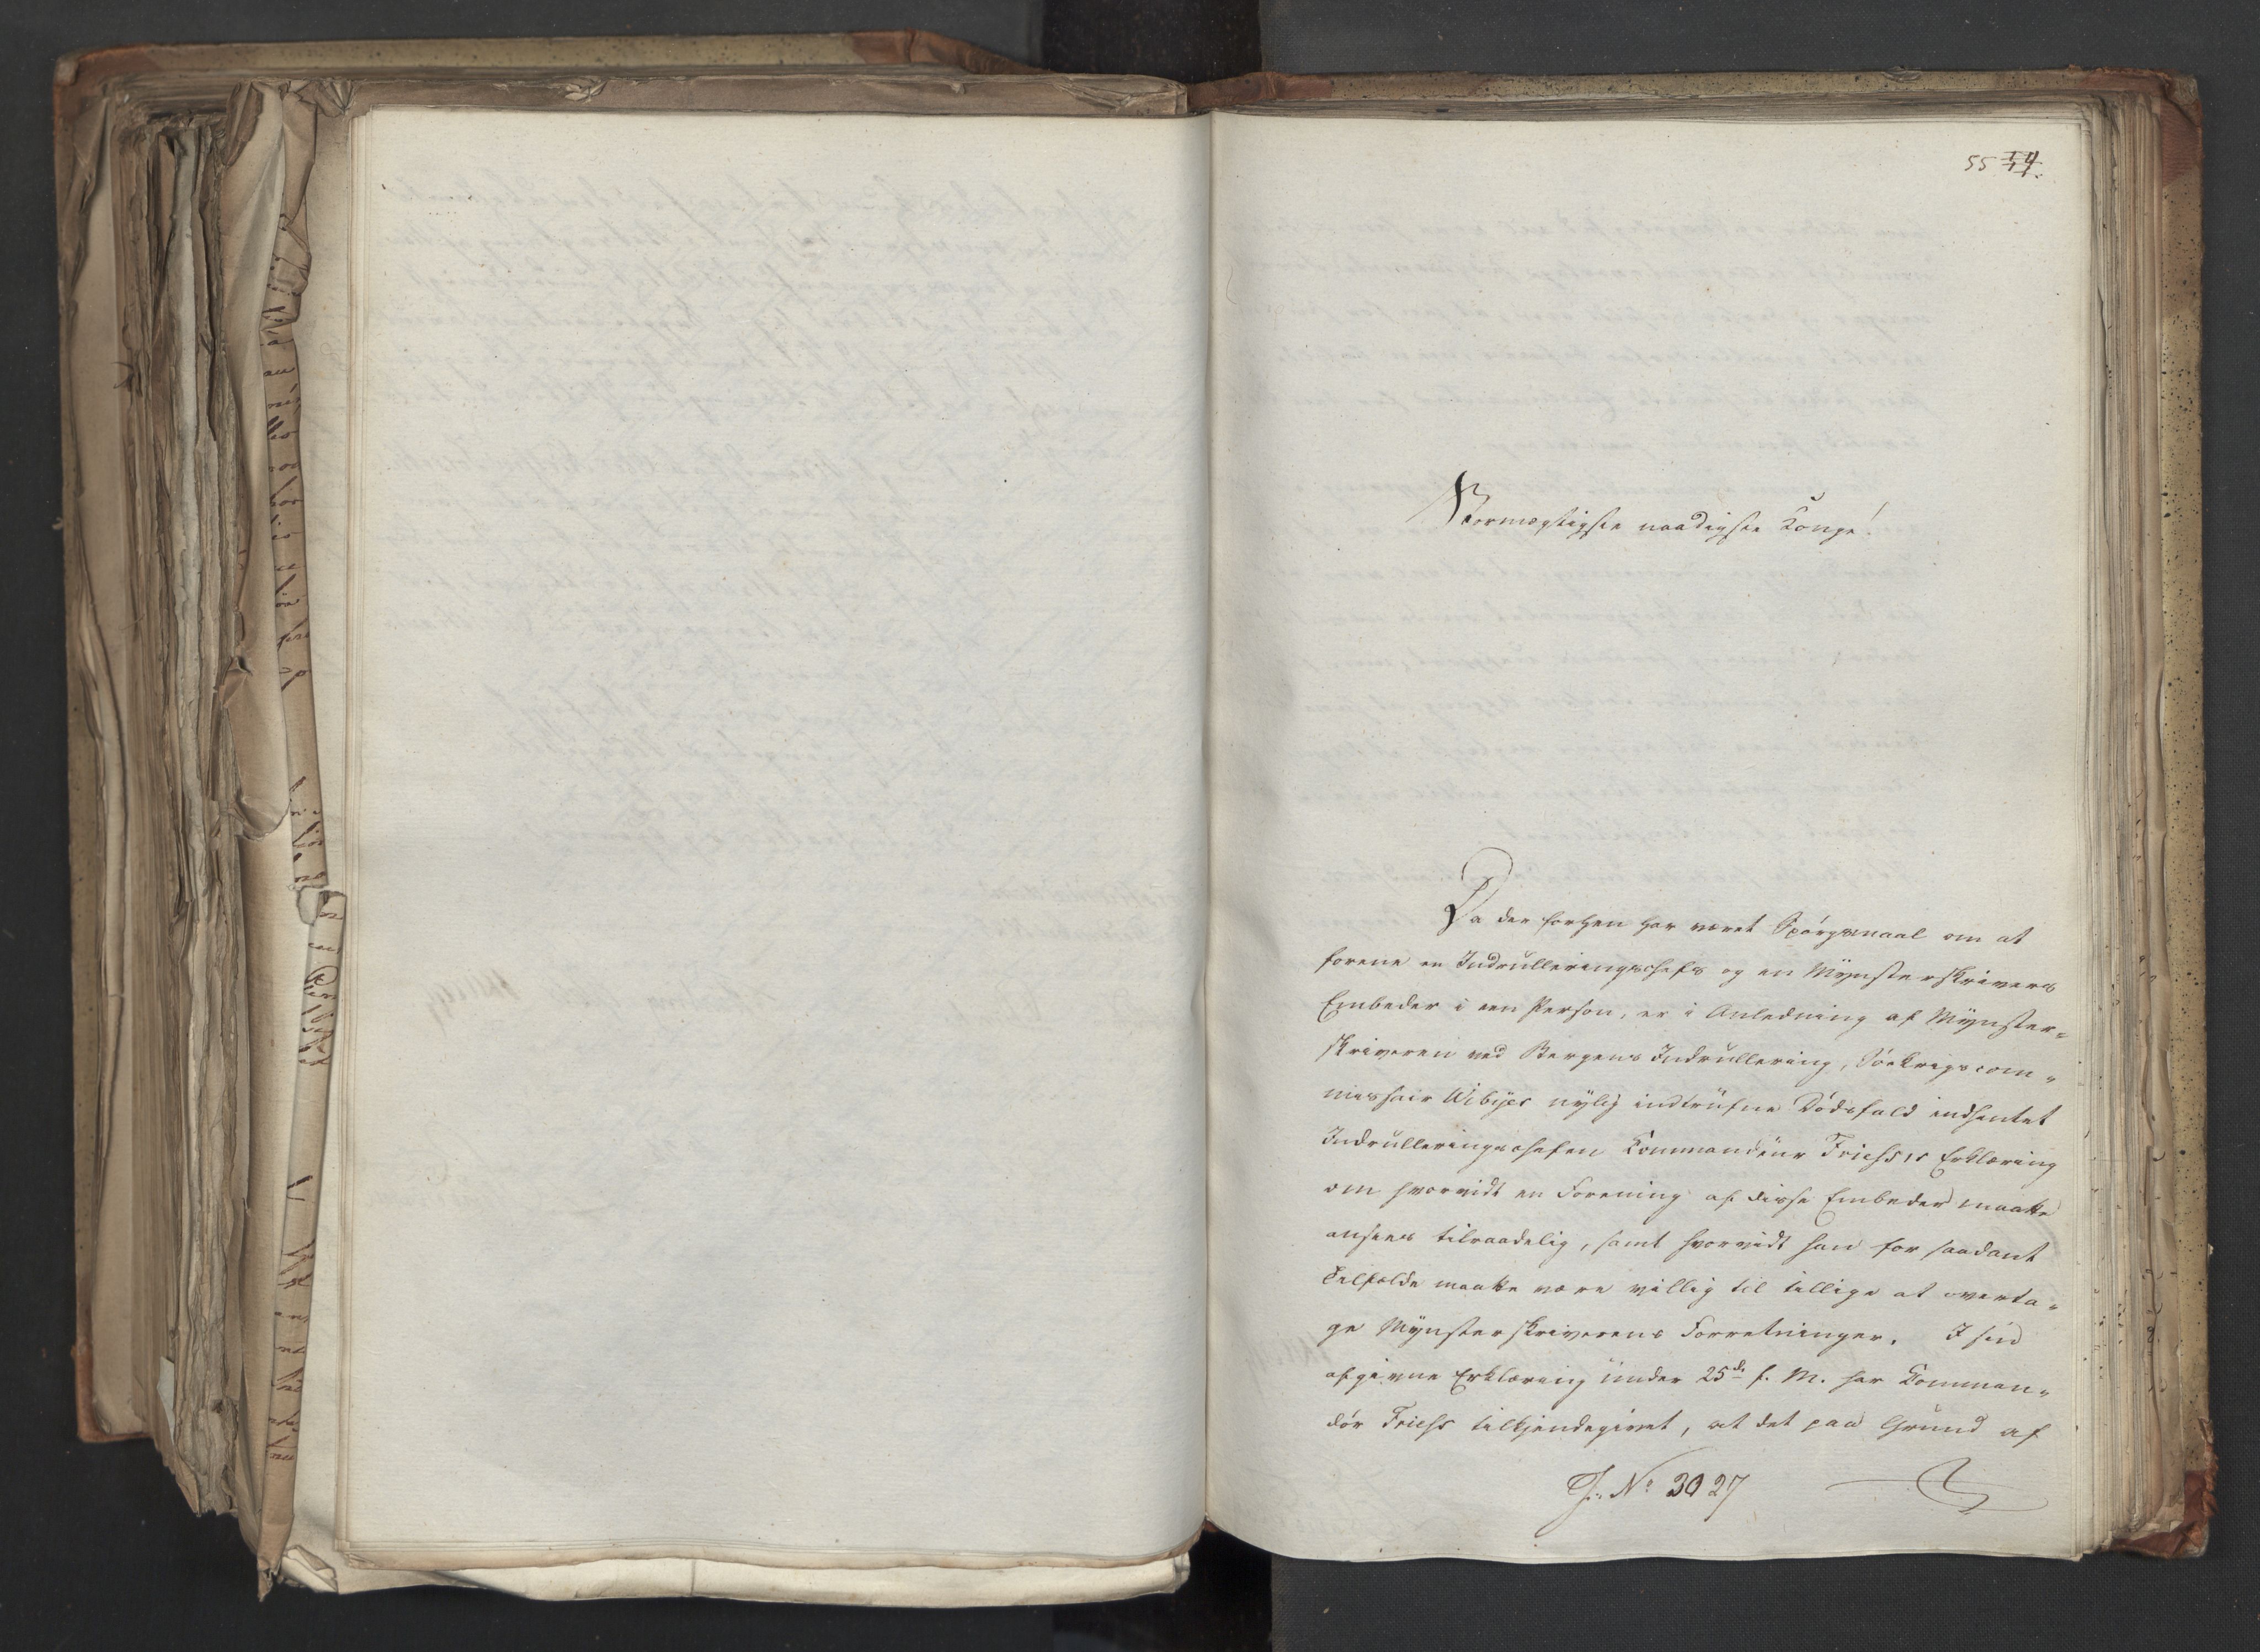 55 54.
Stormægtigste naadigste Konge!
Da der forhen har været Spörgsmaal om at
forene en Indrulleringschefs og en Mÿnsterskrivers
Embeder i een Person, er i Anledning af Mÿnster-
skriveren ved Bergens Indrullering, Söekrigscom-
missair Wibÿes nÿlig indtrufne Dödsfald indhentet
Indrulleringschefen Kommandeur Friess's Erklæring
om hvorvidt en Forening af disse Embeder maatte
ansees tilraadelig, samt hvorvidt han for saadant
Tilfælde maatte være villig til tillige at overta-
ge Mÿnsterskriverens Forretninger. I sin
afgivne Erklæring under 25d. f. M. har Komman-
dör Friess tilkjendegivet, at det paa Grund af
J. No 3027